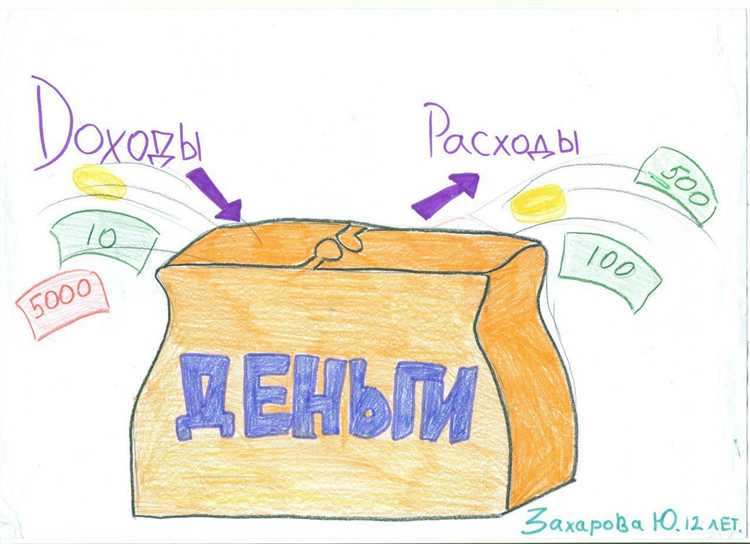 Доходы
Расходы
10
5000
500
100
ДЕНЬГИ
Захарова Ю. 12 ЛЕТ.